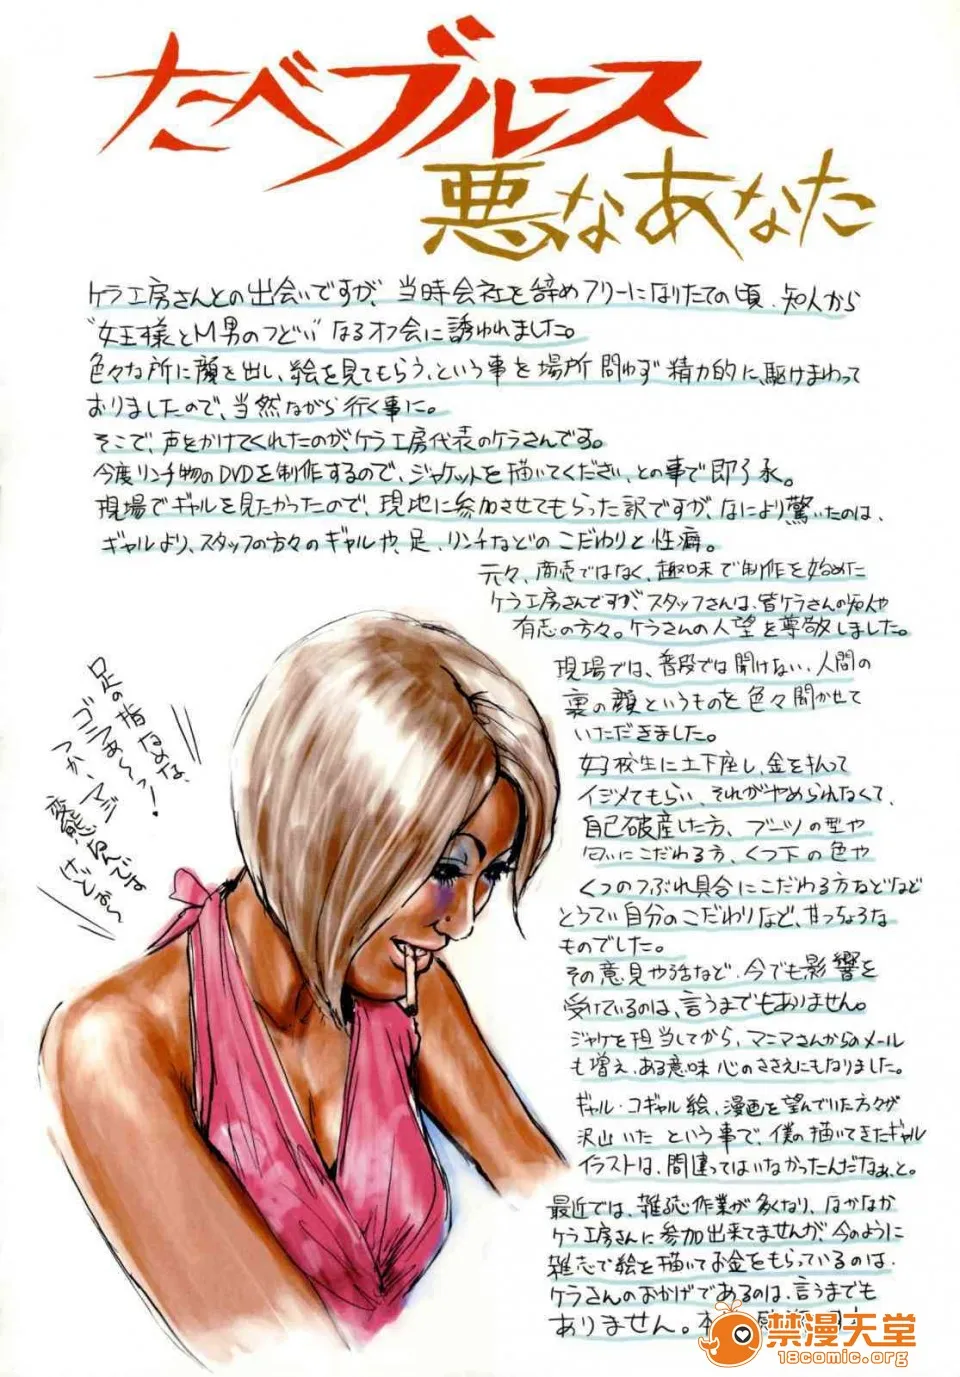 たべブルース
悪なあなた
ケラ工房さんとの出会いですが、当時会社を辞めフリーになりたての頃、知人から
"女王様とM男のつどい"なるオフ会に誘われました。
色々な所に顔を出し、絵を見てもらう、という事を場所問わず精力的に、駆けまわって
おりましたので、当然ながら行く事に。
そこで、声をかけてくれたのが、ケラ工房代表のケラさんです。
今度リンチ物のDVDを制作するので、ジャケットを描いてください、との事で即了承。
現場でギャルを見たかったので、現地に参加させてもらった訳ですが、なにより驚いたのは、
ギャルより、スタッフの方々のギャルや、足、リンチなどのこだわりと性癖。
元々、商売ではなく、趣味で制作を始めた
ケラ工房さんですが、スタッフさんは、皆ケラさんの知人や
有志の方々。ケラさんの人望を尊敬しました。
現場では、普段では聞けない、人間の
裏の顔というものを色々聞かせて
いただきました。
女子校生に土下座し、金を払って
イジメてもらい、それがやめられなくて、
自己破産した方、ブーツの型や
匂いにこだわる方、くつ下の色や
くつのつぶれ具合にこだわる方などなど
とうてい自分のこだわりなど、せっちょろな
ものでした。
その意見や話など、今でも影響を
受けているのは、言うまでもありません。
ジャケを担当してから、マニマさんからのメール
も増え、ある意味心のささえにもなりました。
ギャル・コギャル絵、漫画を望んでいた方々が
沢山いたという事で、僕の描いてきたギャル
イラストは、間違ってはいなかったんだなぁ、と。
最近では、雑誌作業が多くなり、なかなか
ケラ工房さんに参加出来てませんが、今のように
雑誌で絵を描いてお金をもらっているのは、
ケラさんのおかげであるのは、言うまでも
ありません。本
足の指なめな、
ゴラあ〜っ!
つか、マジ
変態なんじゃね
禁漫天堂
18comic.org